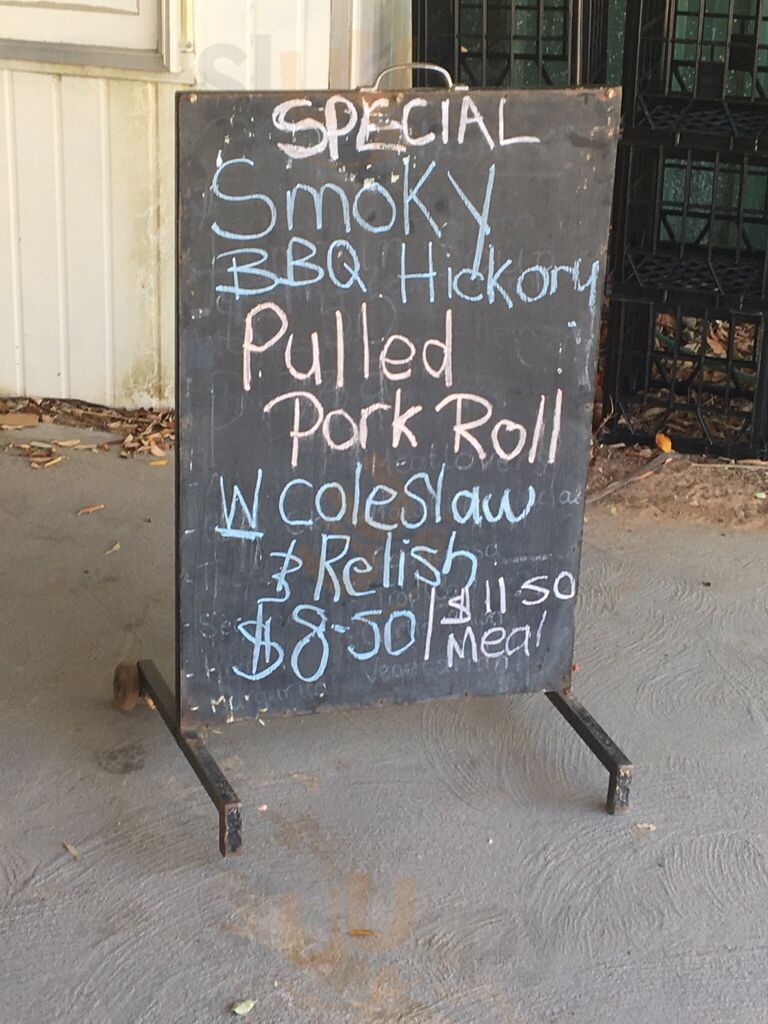 SPECIAL
Smoky
BBQ Hickory
Pulled
Pork Roll
W Coleslaw
& Relish
$8-50 / $11 50
Meal